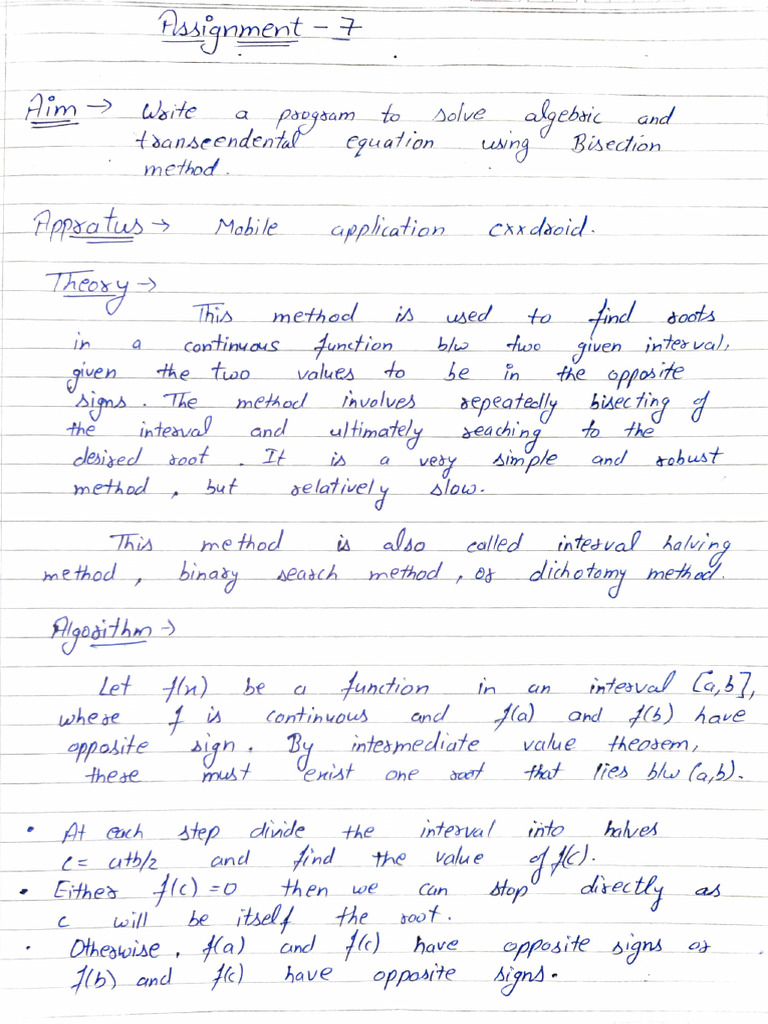 Assignment - 7
Aim → Write a program to solve algebric and
transcendental equation using Bisection
method.
Appratus → Mobile application cxxdroid.
Theory →
This method is used to find roots
in a continuous function b/w two given interval,
given the two values to be in the opposite
signs. The method involves repeatedly bisecting of
the interval and ultimately reaching to the
desired root. It is a very simple and robust
method, but relatively slow.
This method is also called interval halving
method, binary search method, or dichotomy method.
Algorithm →
Let f(x) be a function in an interval [a,b],
where f is continuous and f(a) and f(b) have
opposite sign. By intermediate value theorem,
there must exist one root that lies b/w (a,b).
• At each step divide the interval into halves
c = a+b/2 and find the value of f(c).
• Either f(c) = 0 then we can stop directly as
c will be itself the root.
• Otherwise, f(a) and f(c) have opposite signs or
f(b) and f(c) have opposite signs.